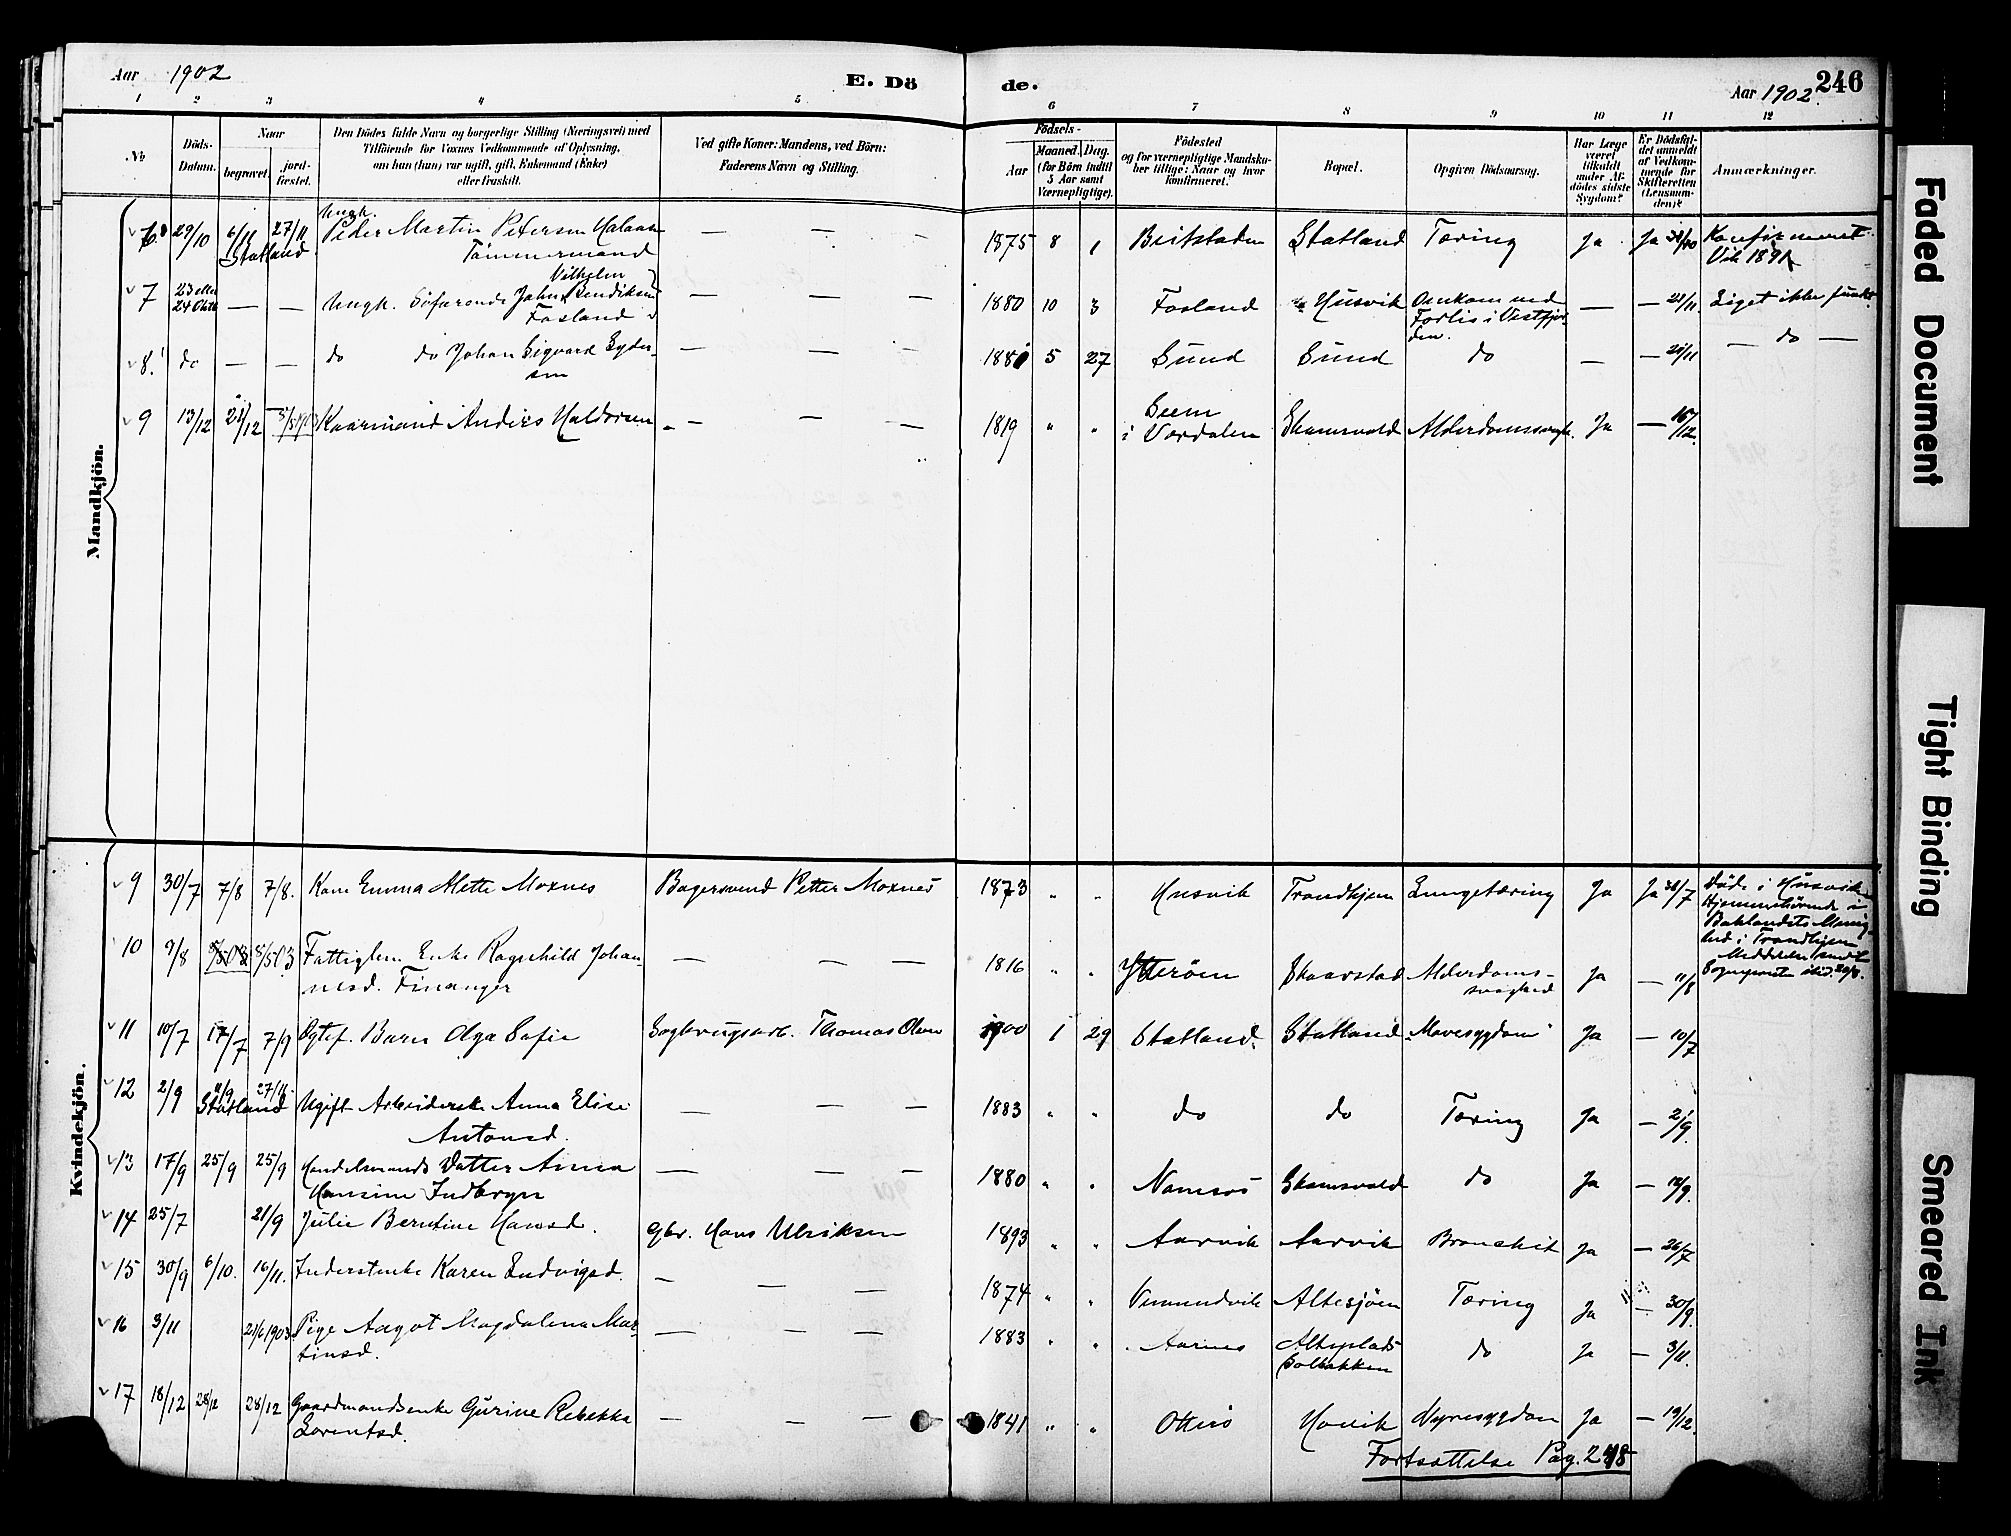 Aar 1902
E. Döde.
Aar 1902.
246
1 2 3 4 5 6 7 8 9 10 11 12
No
Döds-Datum.
Naar
begravet.
jordfæstet.
Den Dödes fulde Navn og borgerlige Stilling (Næringsvei) med
Tilföiende for Voxnes Vedkommende af Oplysning,
om han (hun) var ugift, gift, Enkemand (Enke)
eller fraskilt.
Ved gifte Koner: Mandens, ved Börn:
Faderens Navn og Stilling.
Födsels-
Aar
Maaned. Dag.
(for Börn indtil
5 Aar samt
Værnepligtige).
Födested
og for værnepligtige Mandskaber tillige: Naar og hvor
konfirmeret.
Bopæl.
Opgiven Dödsaarsag.
Har Læge
været
tilkaldt
under Afdödes sidste
Sygdom?
Er Dödsfaldet anmeldt
af Vedkommende for
Skifteretten
(Lensmanden)?
Anmærkninger.
Mandkjön.
6. 29/10 6/11 27/11 Statland Ungk. Peder Martin Petersen
Tömmermand — — — 1875 8 1 Beitstaden Statland Tæring Ja Ja 30/10 Konfirmeret
Vik 1891
7 23 eller
24 Oktb — — Ungk. Söfarende Johan Vilhelm Bendiksen
Fosland — — — 1880 10 3 Fosland Husvik Omkom ved
Forlis i Vestfjorden. — — 21/11 Liget ikke fundet
8. do — — do do Johan Sigvard Sydersen — — — 1881 5 27 Sund Sund do — — 21/11 — do —
9 13/12 21/12 Kaarmand Anders Haldorsen — — — 1819 " " Seem
i Værdalen Skamsvold Alderdomssvagh. Ja — 15/12
Kvindekjön.
9 30/7 7/8 7/8. Kone Emma Alette Moxnes Bagersvend Petter Moxnes 1873 " " Husvik Trondhjem Lungetæring Ja Ja 30/7 Döde i Husvik
Hjemmehörende i
Baklandets Menighed i Trondhjem
Meddelelse sendt
Sogneprest
10 9/8 8/5 03 Fattiglem Enke Ragnhild Johannesd. Finanger — — — 1816 " " Ytterøen Skaarstad Alderdomssvaghed Ja — 11/8
11 10/7 17/7 7/9 Ægtef. Barn Olga Sofie Sagbrugsarb. Thomas Olsen 1900 1 29 Statland. Statland Mavesygdom Ja — 10/7
12 2/9 11/9 27/11 Statland Ugift Arbeiderske Anna Elise
Antonsd. — — — 1883 " " do do Tæring Ja — 2/9.
13 17/9 25/9 25/9 Handelsmands Datter Anna
Hansine Inderbryn — — — 1880 " " Namsos Skamsvold do Ja — 18/9.
14 25/7 21/9 Julie Berntine Hansd. Gbr. Hans Ulriksen 1893 " " Aarvik Aarvik Bronchit Ja — 26/7
15 30/9 6/10. 16/11. Inderstenke Karen Ludvigsd. — — — 1874 " " Vemundvik Altesjöen Tæring Ja — 30/9.
16 3/11 21/6 1903. Pige Aagot Magdalena Martinsd. — — — 1883 " " Aarnes Alteplads
Solbakken do Ja — 3/11.
17 18/12 28/12 28/12 Gaardmandsenke Gurine Rebekka
Lorentsd. — — — 1841 " " Otterö Hovik Nyresygdom Ja — 19/12.
Fortsættelse Pag. 248
Faded Document
Tight Binding
Smeared Ink